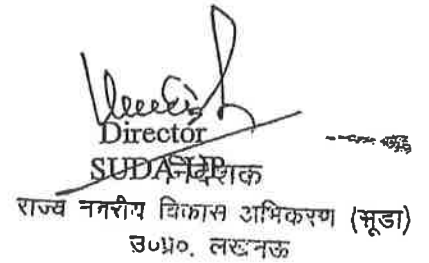 Director
SUDA-UP
निदेशक
राज्य नगरीय विकास अभिकरण (सूडा)
उ०प्र०. लखनऊ